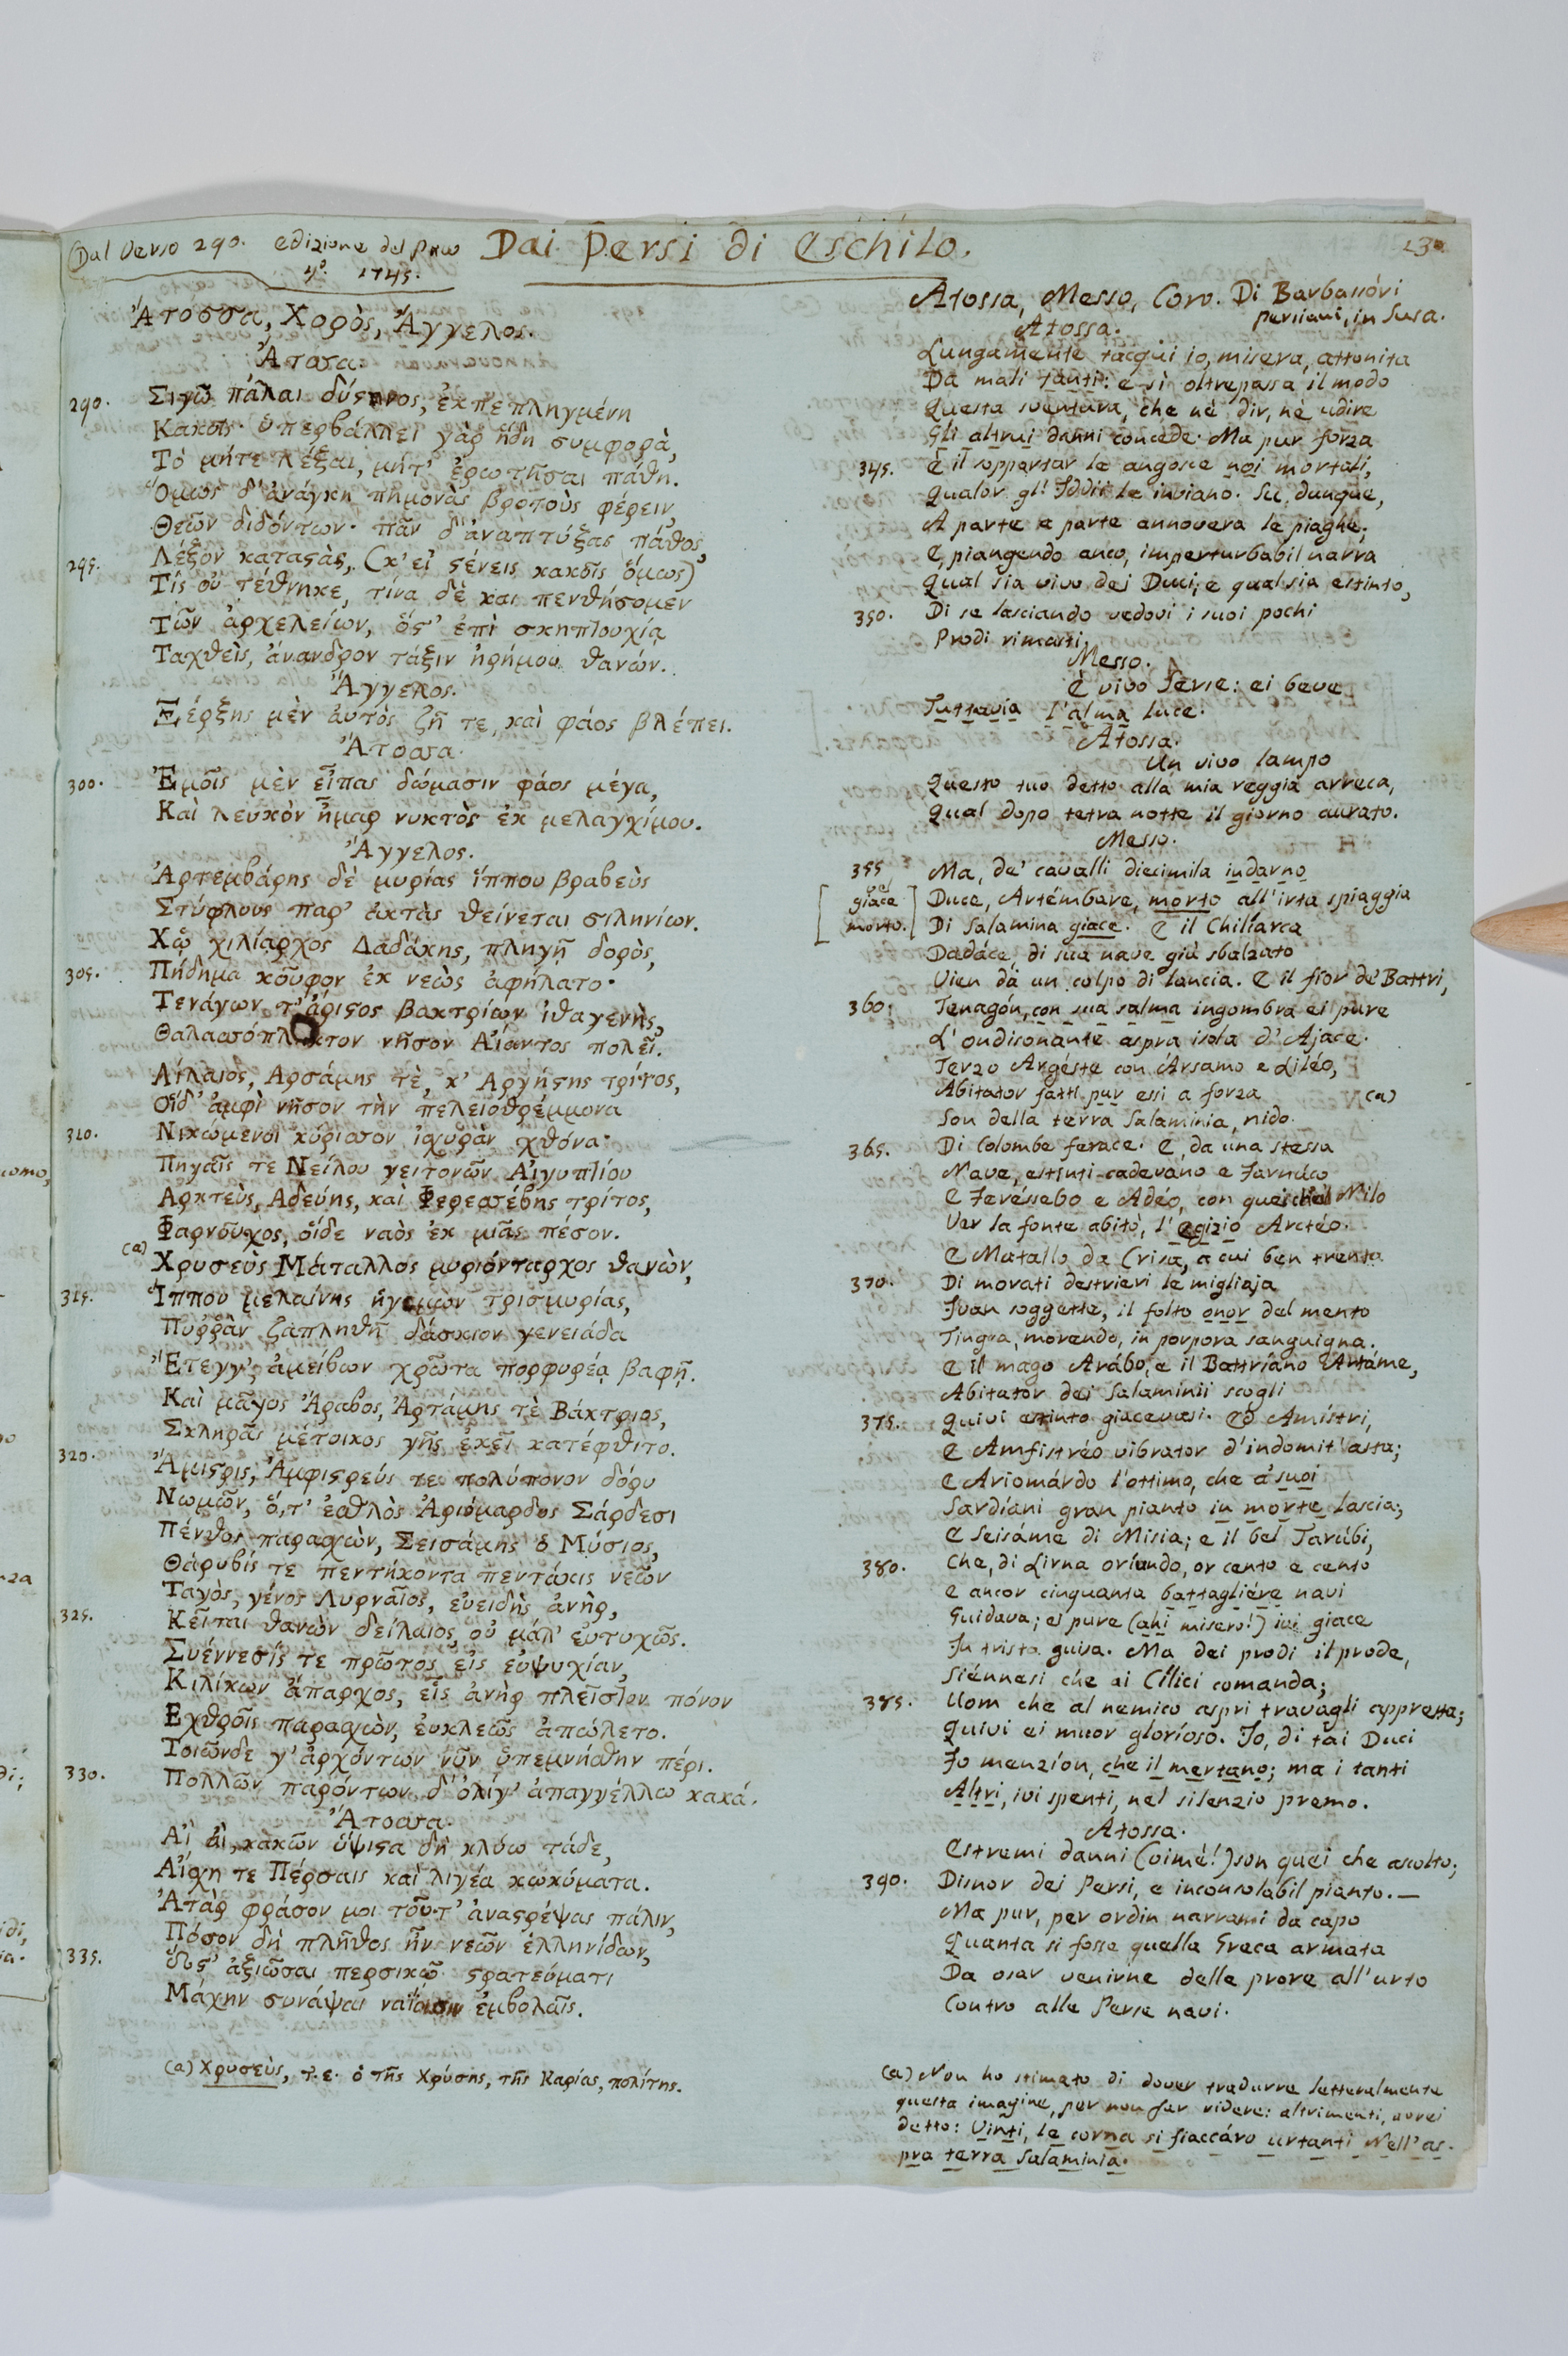 Dal Verso 290. edizione del Paw
4.º 1745.
Dai Persi di Eschilo.
Ἀτόσσα, Χορὸς, Ἄγγελος.
Ἄτοσσα.
290. Σιγῶ πάλαι δύστηνος, ἐκπεπληγμένη
Κακοῖς· ὑπερβάλλει γὰρ ἥδη συμφορὰ,
Τὸ μήτε λέξαι, μήτ' ἐρωτῆσαι πάθη.
Ὅμως δ' ἀνάγκη πημονὰς βροτοὺς φέρειν,
Θεῶν διδόντων· πᾶν δ' ἀναπτύξας πάθος,
295. Λέξον καταςὰς, (κ' εἰ ςένεις κακοῖς ὅμως)
Τίς οὐ τέθνηκε, τίνα δὲ και πενθήσομεν
Τῶν ἀρχελείων, ὅς' ἐπὶ σκηπτουχίᾳ
Ταχθεὶς, ἄνανδρον τάξιν ἠρήμου θανών.
Ἄγγελος.
Ξέρξης μὲν ἀυτὸς ζῆ τε, καὶ φάος βλέπει.
Ἄτοσσα.
300. Ἐμοῖς μὲν εἶπας δώμασιν φάος μέγα,
Καὶ λευκὸν ἦμαρ νυκτὸς ἐκ μελαγχίμου.
Ἄγγελος.
Ἀρτεμβάρης δὲ μυρίας ἵππου βραβεὺς
Στύφλους παρ' ἀκτὰς θείνεται σιληνίων.
Χὠ χιλίαρχος Δαδάκης, πληγῇ δορὸς,
305. Πήδημα κοῦφον ἐκ νεὼς ἀφήλατο·
Τενάγων τ' ἄριςος βακτρίων ἰθαγενὴς,
Θαλασσόπλ κτον νῆσον Αἴαντος πολεῖ.
Λίλαιος, Αρσάμης τὲ, κ' Αργήςης τρίτος,
Οἵδ' ἀμφὶ νῆσον τὴν πελειοθρέμμονα
310. Νικώμενοι κύρισσον ἰσχυρὰν χθόνα·
Πηγαῖς τε Νείλου γειτονῶν Αἰγυπτίου
Αρκτεὺς, Αδεύης, καὶ Φερεσσέβης τρίτος,
Φαρνοῦχος, οἵδε ναὸς ἐκ μιᾶς πέσον.
(a) Χρυσεὺς Μάταλλος μυριόνταρχος θανὼν,
315. Ἵππου μελαίνης ἡγεμὼν τρισμυρίας,
Πυῤῥὰν ζαπληθῆ δάσκιον γενειάδα
Ἔτεγγ', ἀμείβων χρῶτα πορφυρέᾳ βαφῇ.
Καὶ μᾶγος Ἄραβος, Ἀρτάμης τὲ Βάκτριος,
Σκληρᾶς μέτοικος γῆς ἐκεῖ κατέφθιτο.
320. Ἄμιςρις, Ἀμφιςρεύς τε πολύπονον δόρυ
Νωμῶν, ὅ,τ' ἐσθλὸς Ἀριόμαρδος Σάρδεσι
Πένθος παρασχὼν, Σεισάμης ὁ Μύσιος,
Θάρυβίς τε πεντήκοντα πεντάκις νεῶν
Ταγὸς, γένος Λυρναῖος, εὐειδὴς ἀνὴρ,
325. Κεῖται θανὼν δείλαιος οὐ μάλ' εὐτυχῶς.
Συέννεσίς τε πρῶτος εἰς εὐψυχίαν,
Κιλίκων ἄπαρχος, εἷς ἀνὴρ πλεῖστον πόνον
Εχθροῖς παρασχὼν, ἐυκλεῶς ἀπώλετο.
Τοιῶνδε γ' ἀρχόντων νῦν ὑπεμνήσθην πέρι.
330. Πολλῶν παρόντων δ' ὀλίγ' ἀπαγγέλλω κακά.
Ἄτοσσα.
Αἲ αἲ, κακῶν ὕψιςα δὴ κλύω τάδε,
Αἴσχη τε Πέρσαις καὶ λιγέα κωκύματα.
Ἀτὰρ φράσον μοι τοῦτ' ἀναςρέψας πάλιν,
Πόσον δὴ πλῆθος ἦν νεῶν ἑλληνίδων,
335. Ὥς' ἀξιῶσαι περσικῷ ςρατεύματι
Μάχην συνάψαι ναΐοισιν ἐμβολαῖς.
(a) Χρυσεὺς, τ.ε. ὁ τῆς Χρύσης, τῆς Καρίας, πολίτης.
130
Atossa, Messo, Coro. Di Barbassóri
persiani, in Susa.
Atossa.
Lungamente tacqui io, misera, attonita
Da mali tanti: e sì oltrepassa il modo
Questa sventura, che nè dir, nè udire
Gli altrui danni concede. Ma pur forza
345. È il sopportar le angosce noi mortali,
Qualor gl' Iddii le inviano. Su, dunque,
A parte a parte annovera le piaghe;
E, piangendo anco, imperturbabil narra
Qual sia vivo dei Duci, e qual sia estinto,
350. Di se lasciando vedovi i suoi pochi
Prodi rimasti.
Messo.
È vivo Serse: ei beve
Tuttavia l'alma luce.
Atossa.
Un vivo lampo
Questo tuo detto alla mia reggia arreca,
Qual dopo tetra notte il giorno aurato.
Messo.
355. Ma, de' cavalli diecimila indarno
[giace Duce, Artémbare, morto all'irta spiaggia
morto.] Di Salamina giace. E il Chilíarca
Dadáce, di sua nave giù sbalzato
Vien da un colpo di lancia. E il fior de' Battri,
360. Tenagón, con sua salma ingombra ei pure
L'ondisonante aspra isola d'Ajace.
Terzo Argéste con Ársamo e Liléo,
Abitator fatti pur essi a forza (a)
Son della terra Salaminia, nido
365. Di Colombe ferace. E, da una stessa
Nave, estinti cadevano e Farnúco
E FerésSebo e Adéo, con quei che'l Nilo
Ver la fonte abitò, l'egizio Arctéo.
E Matallo da Crisa, a cui ben trenta
370. Di morati destrieri le migliaja
Ivan soggette, il folto onor del mento
Tingea, morendo, in porpora sanguigna.
E il mago Arábo, e il Battríano Artáme,
Abitator dei Salaminii scogli
375. Quivi estinto giacevasi. Ed Amístri,
E Amfistréo vibrator d'indomit'asta;
E Ariomárdo l'ottimo, che a' suoi
Sardíani gran pianto in morte lascia;
E Seisáme di Misia; e il bel Tarúbi,
380. Che, di Lirna oriundo, or cento e cento
E ancor cinquanta battagliére navi
Guidava; ei pure (ahi misero!) ivi giace
In trista guisa. Ma dei prodi il prode,
Siénnesi che ai Cílici comanda;
385. Uom che al nemico aspri travagli appresta;
Quivi ei muor glorioso. Io, di tai Duci
Fo menzíon, che il mertano; ma i tanti
Altri, ivi spenti, nel silenzio premo.
Atossa.
Estremi danni (oimè!) son quei che ascolto;
390. Disnor dei Persi, e inconsolabil pianto.—
Ma pur, per ordin narrami da capo
Quanta si fosse quella Greca armata
Da osar venirne delle prore all'urto
Contro alle Perse navi.
(a) Non ho stimato di dover tradurre letteralmente
questa imagine, per non far ridere: altrimenti, avrei
detto: Vinti, le corna si fiaccáro urtanti Nell'as-
pra terra Salaminia.